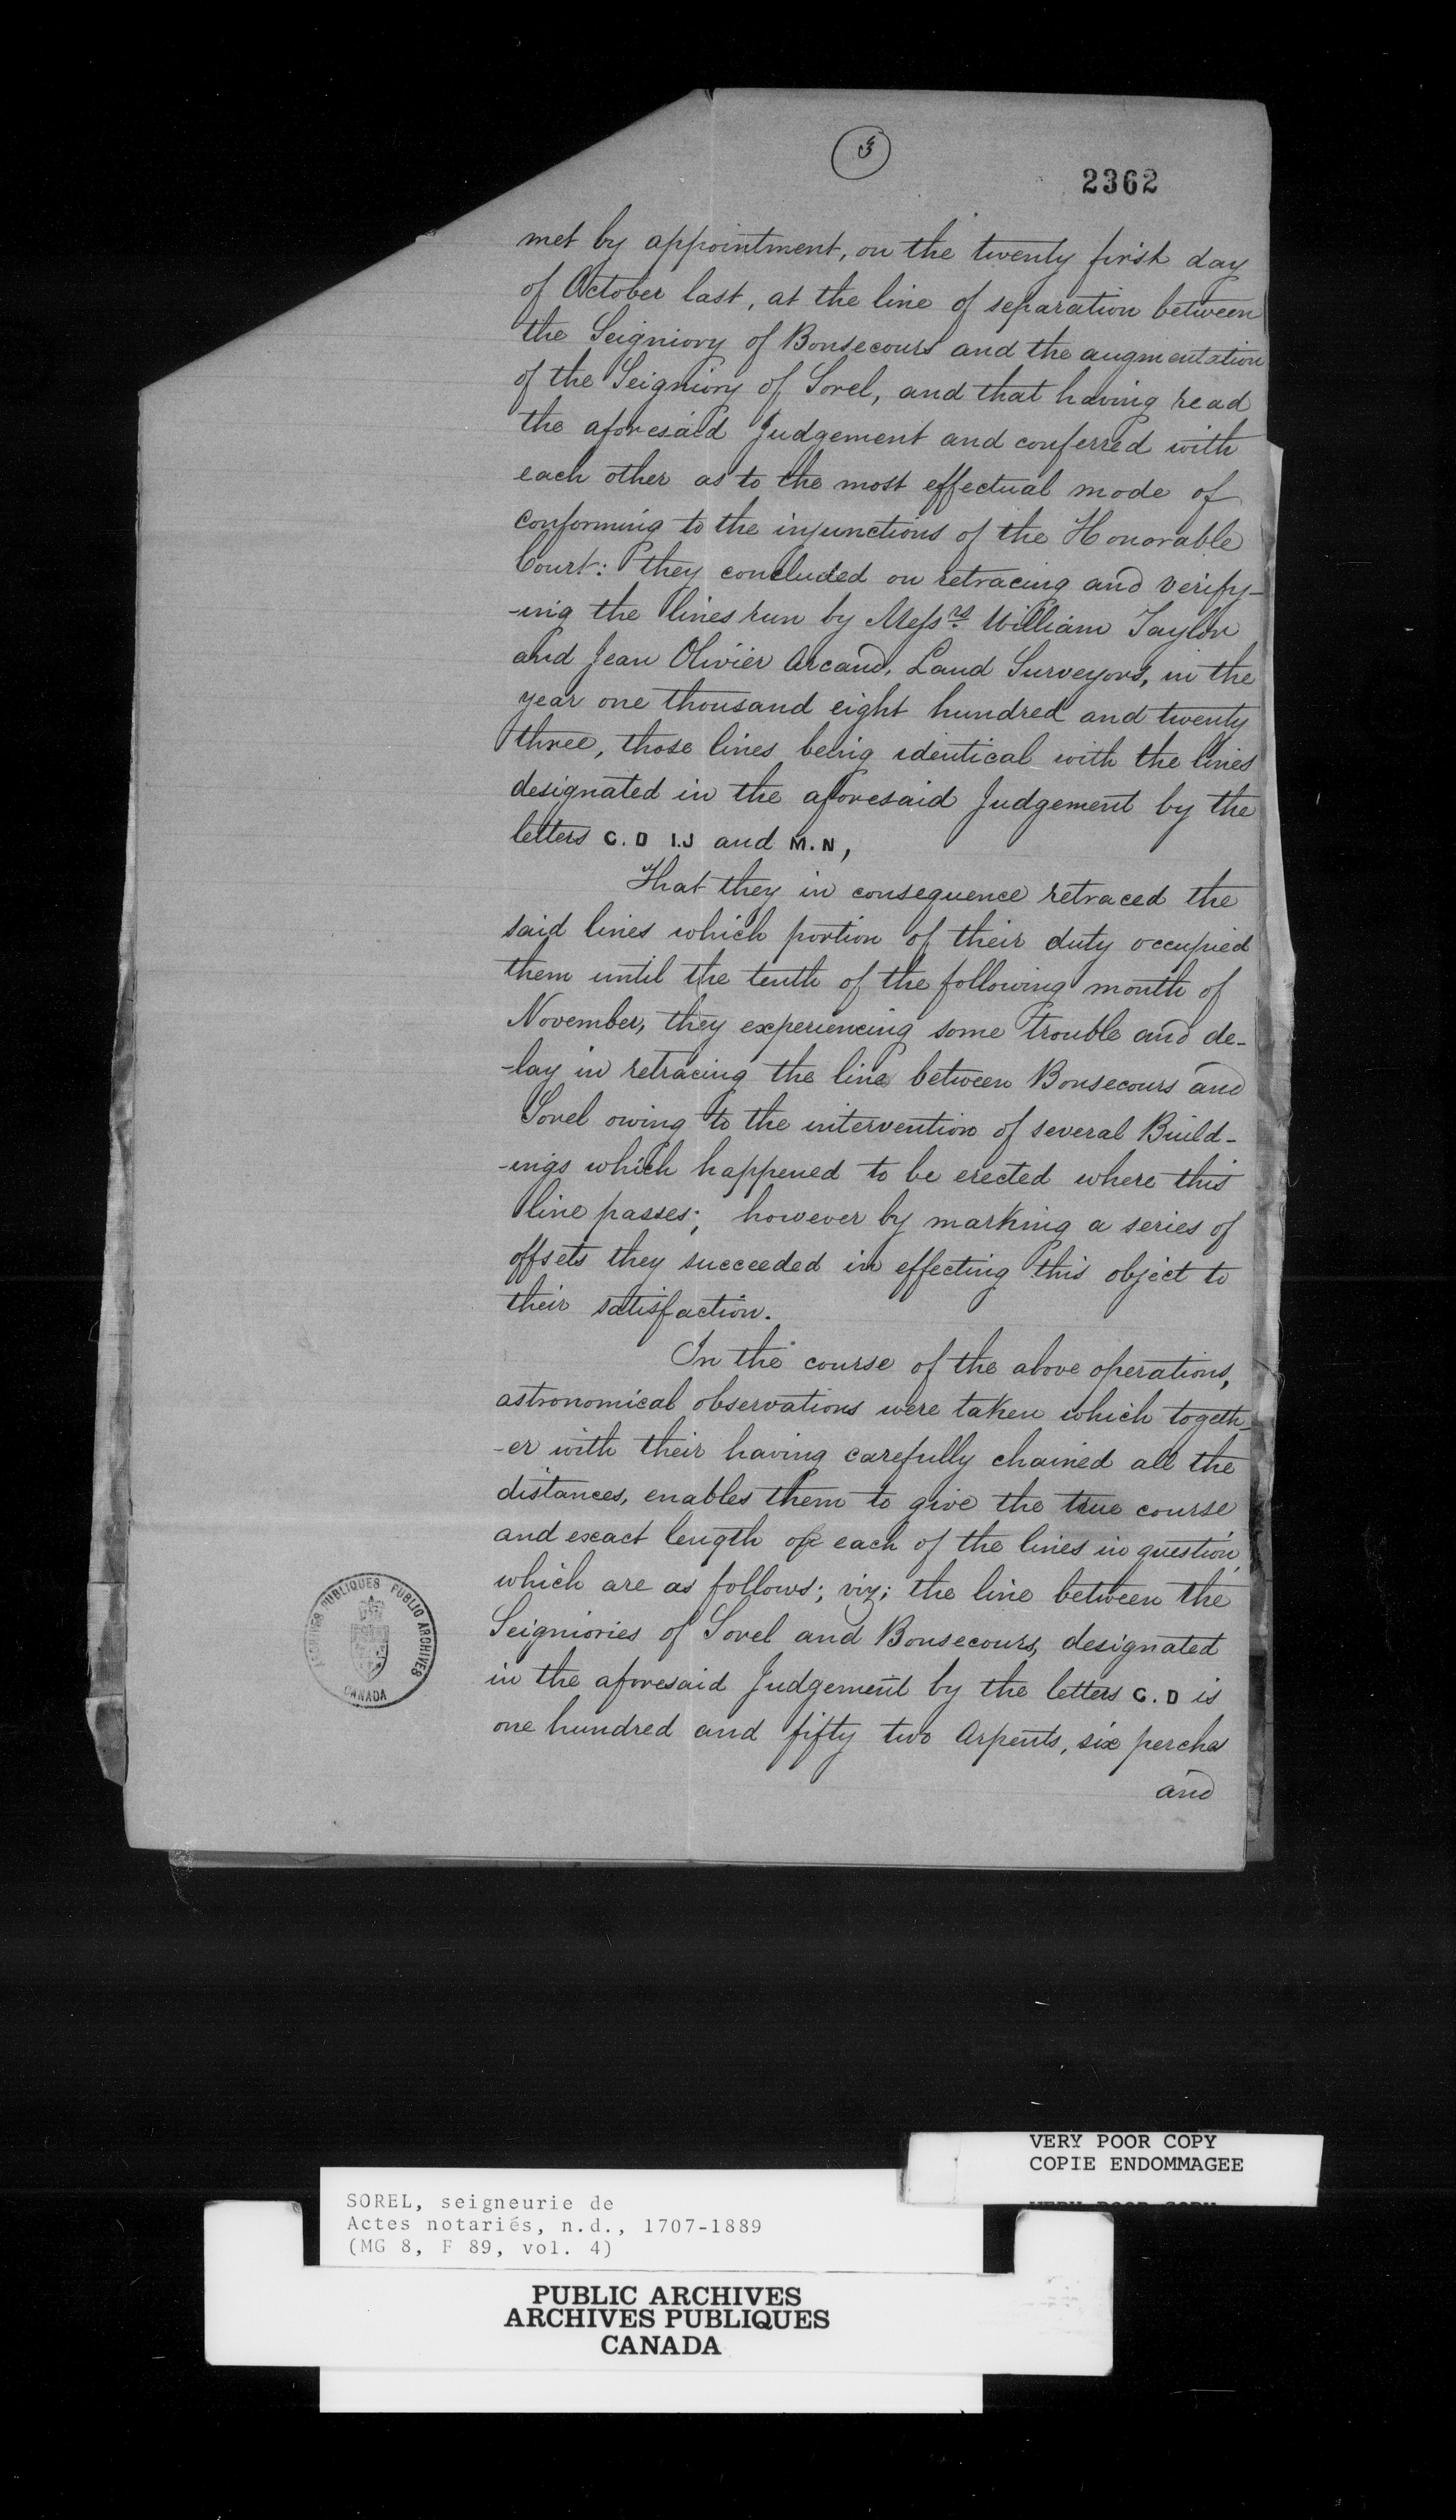 3
2362
met by appointment, on the twenty first day
of October last, at the line of separation between
the Seigniory of Bonsecours and the augmentation
of the Seigniory of Sorel, and that having read
the aforesaid Judgement and conferred with
each other as to the most effectual mode of
conforming to the injunctions of the Honorable
Court: they concluded on retracing and verify-
-ing the lines run by Messrs. William Taylor
and Jean Olivier Arcand, Land Surveyors, in the
year one thousand eight hundred and twenty
three, those lines being identical with the lines
designated in the aforesaid Judgement by the
letters C. D I.J and M. N,
That they in consequence retraced the
said lines which portion of their duty occupied
them until the tenth of the following month of
November, they experiencing some trouble and de-
-lay in retracing the line between Bonsecours and
Sorel owing to the intervention of several Build-
-ings which happened to be erected where this
line passes; however by marking a series of
offsets they succeeded in effecting this object to
their satisfaction.
In the course of the above operations,
astronomical observations were taken which togeth-
-er with their having carefully chained all the
distances, enables them to give the true course
and exact length of each of the lines in question,
which are as follows; viz; the line between the
Seigniories of Sorel and Bonsecours, designated
in the aforesaid Judgement by the letters C. D is
one hundred and fifty two Arpents, six perches
and
ARCHIVES PUBLIQUES PUBLIC ARCHIVES
CANADA
VERY POOR COPY
COPIE ENDOMMAGEE
VERY POOR COPY
SOREL, seigneurie de
Actes notariés, n.d., 1707-1889
(MG 8, F 89, vol. 4)
PUBLIC ARCHIVES
ARCHIVES PUBLIQUES
CANADA